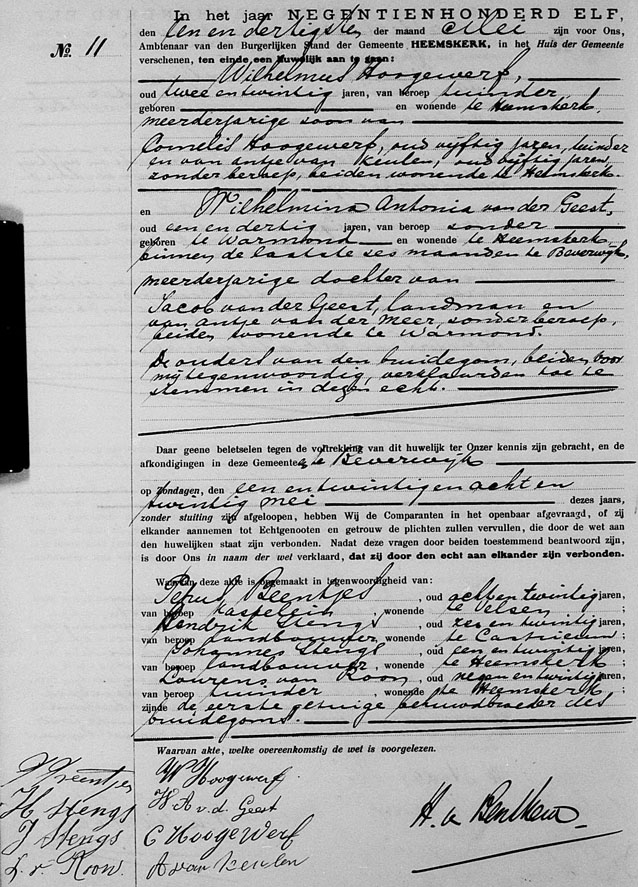 In het jaar NEGENTIENHONDERD ELF,
No. 11
den een en dertigsten der maand Mei zijn voor Ons,
Ambtenaar van den Burgerlijken Stand der Gemeente HEEMSKERK, in het Huis der Gemeente
verschenen, ten einde een huwelijk aan te gaan:
Wilhelmus Hoogewerf,
oud twee en twintig jaren, van beroep tuinder
geboren en wonende te Heemskerk,
meerderjarige zoon van
Cornelis Hoogewerf, oud vijftig jaren, tuinder
en van Antje van Keulen, oud vijftig jaren,
zonder beroep, beiden wonende te Heemskerk.
en Wilhelmina Antonia van der Geest,
oud een en dertig jaren, van beroep zonder
geboren te Warmond en wonende te Heemskerk
binnen de laatste zes maanden te Beverwijk
meerderjarige dochter van
Jacob van der Geest, landman en
van Antje van der Meer, zonder beroep,
beiden wonende te Warmond.
De ouders van den bruidegom, beiden voor
mij tegenwoordig, verklaarden toe te
stemmen in dezen echt.
Daar geene beletselen tegen de voltrekking van dit huwelijk ter Onzer kennis zijn gebracht, en de
afkondigingen in deze Gemeente & te Beverwijk
op Zondagen, den een en twintig en acht en
twintig mei dezes jaars,
zonder stuiting zijn afgeloopen, hebben Wij de Comparanten in het openbaar afgevraagd, of zij
elkander aannemen tot Echtgenooten en getrouw de plichten zullen vervullen, die door de wet aan
den huwelijken staat zijn verbonden. Nadat deze vragen door beiden toestemmend beantwoord zijn,
is door Ons in naam der wet verklaard, dat zij door den echt aan elkander zijn verbonden.
Waarvan deze akte is opgemaakt in tegenwoordigheid van:
Petrus Beentjes, oud acht en twintig jaren,
van beroep kastelein, wonende te Velsen;
Hendrik Stengs, oud zes en twintig jaren,
van beroep landbouwer, wonende te Castricum;
Johannes Stengs, oud een en twintig jaren,
van beroep landbouwer, wonende te Heemskerk;
Lourens van Roon, oud negen en twintig jaren,
van beroep tuinder, wonende te Heemskerk;
zijnde de eerste getuige behuwdbroeder des
bruidegoms.
Waarvan akte, welke overeenkomstig de wet is voorgelezen.
P Beentjes
H Stengs
J Stengs
L. v. Roon.
W Hoogewerf
W A v. d. Geest
C Hoogewerf
A van Keulen